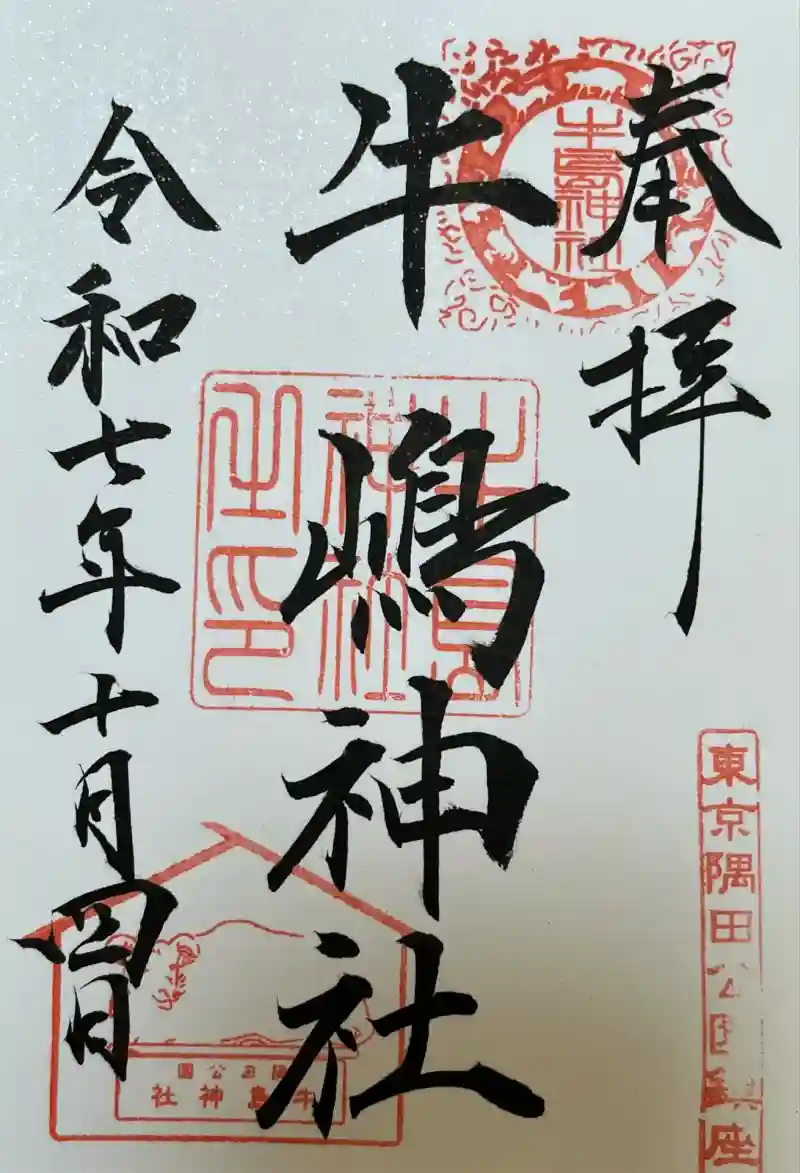 奉拝
牛島神社
東京隅田公園鎮座
牛嶋神社
令和七年十月四日
隅田公園
牛島神社